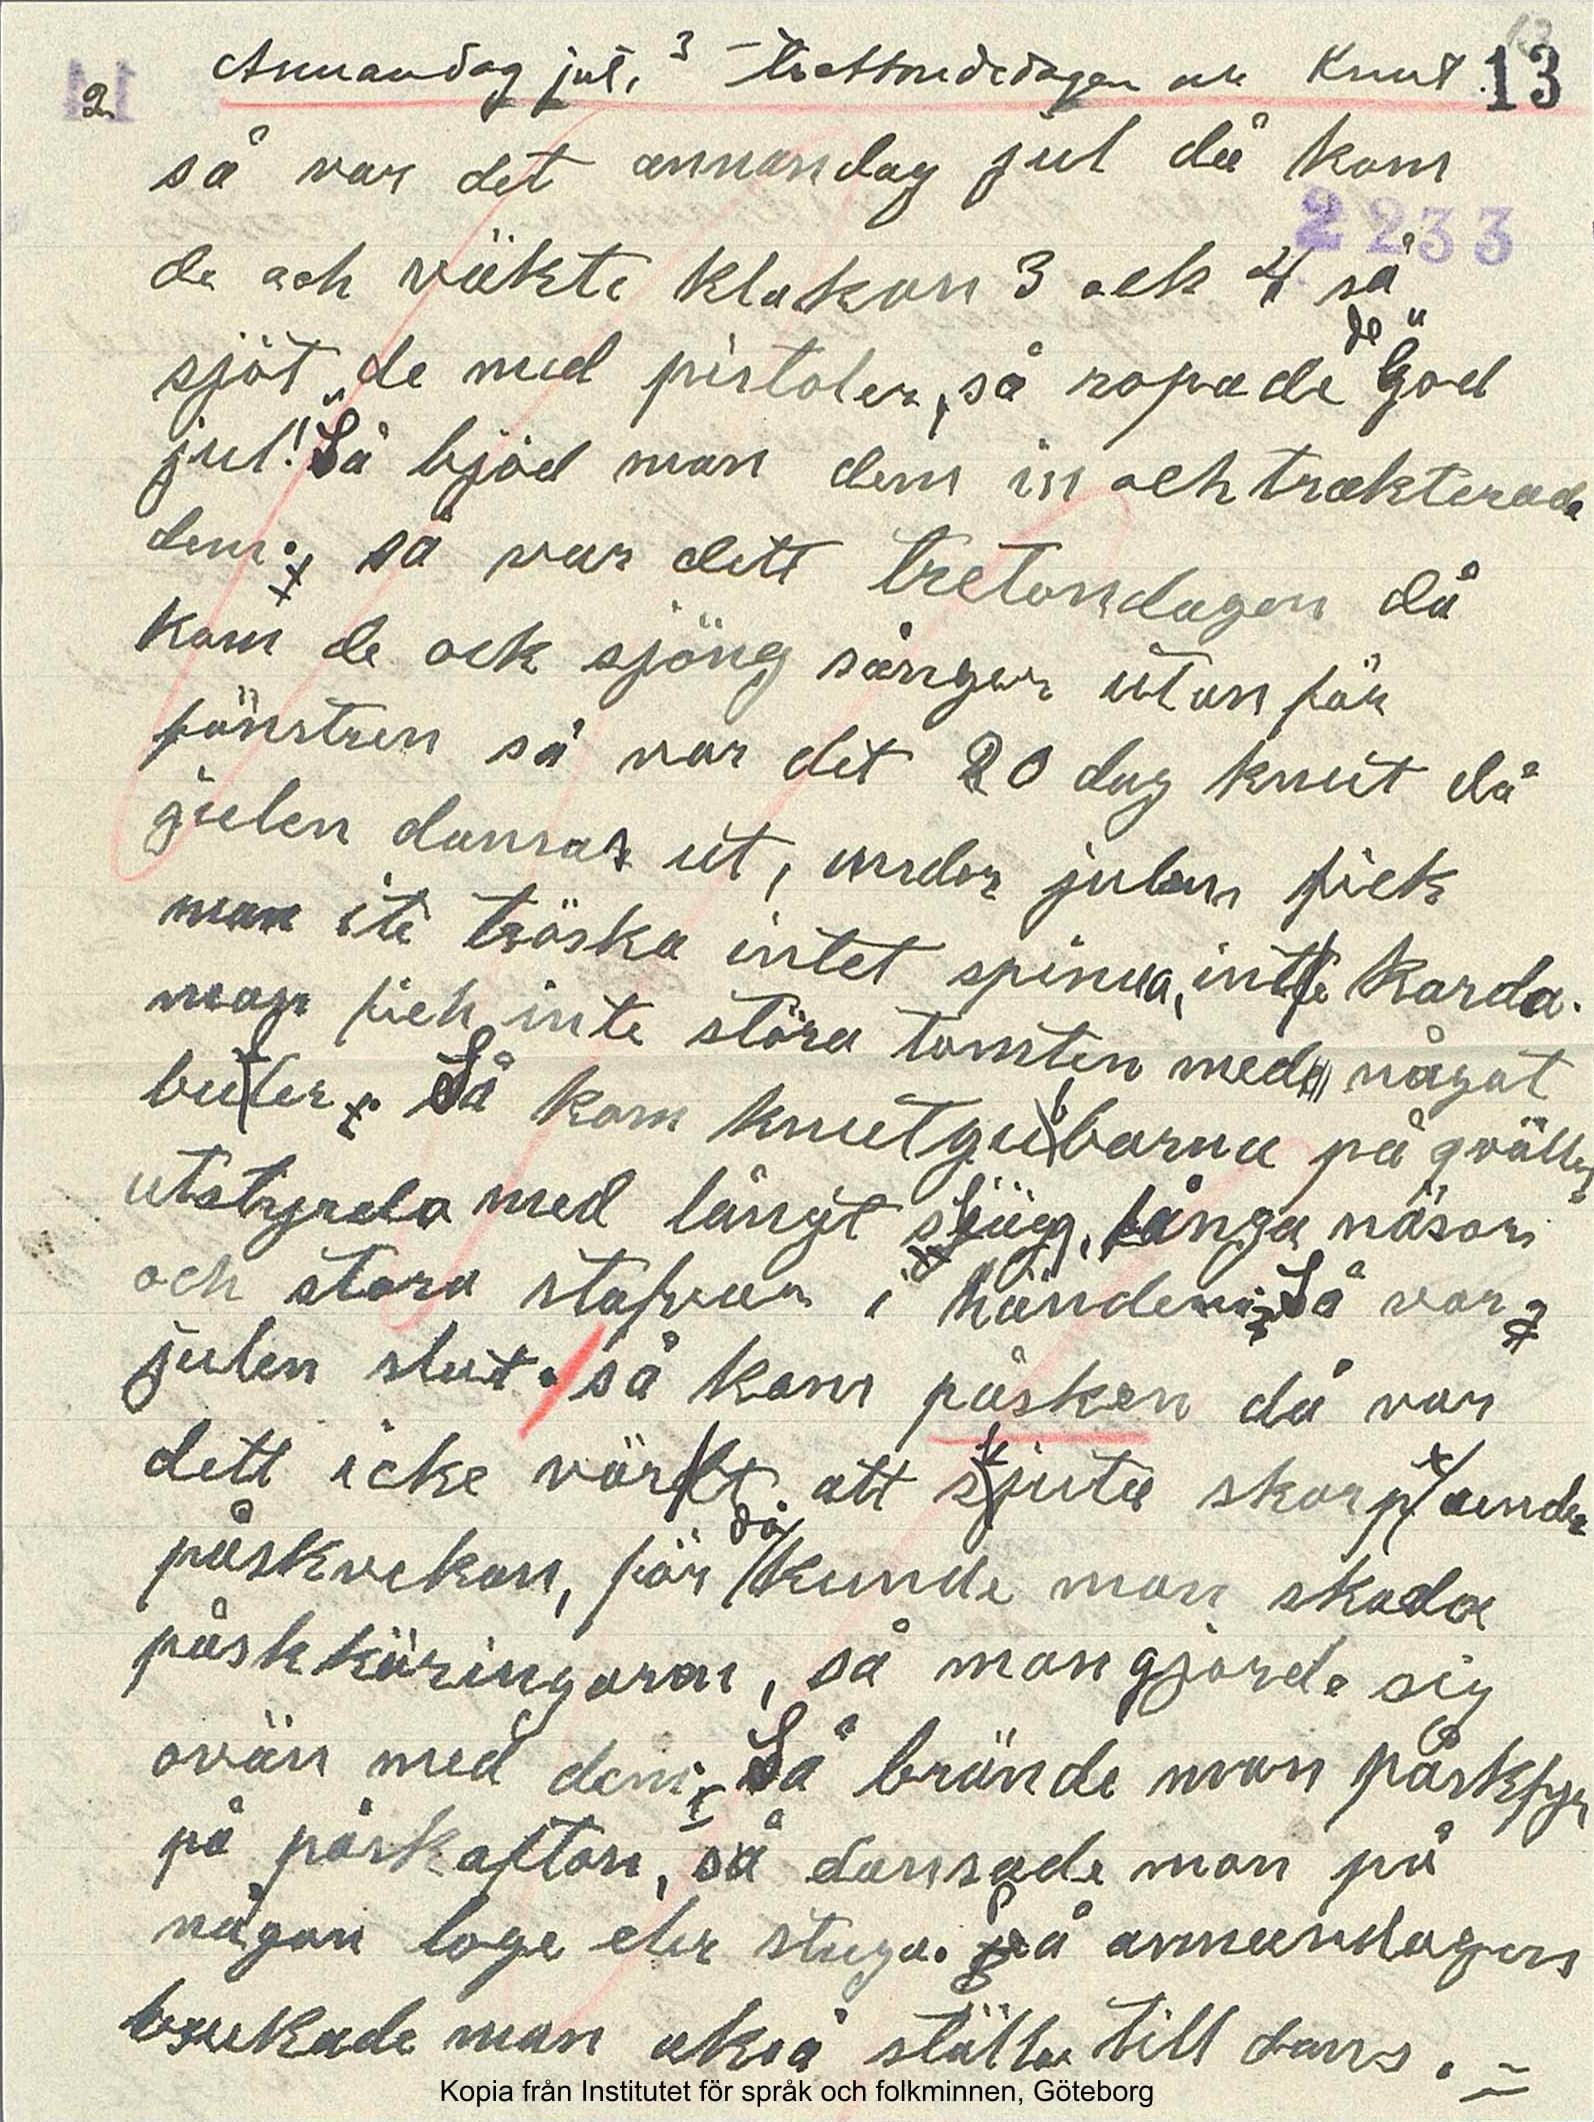 2 Annandag jul, 3 - trettondedagen och Knut. 13
så var det annandag jul då kom
2233
de och väkte klokan 3 och 4 så
sjöt de med pistoler, så ropade de "God
jul!" Så bjöd man dem in och trakterade
dem. så var dett tretondagen då
kom de ock sjöng sånger utan för
fönstren så var det 20 dag knut då
julen dansas ut, under julen fick
man ite tröska intet spinna, inte karda.
man fick inte störa tomten med något
buler. Så kom knutgubarna på qvällen
utstyrda med långt skägg, långa näsor
och stora stafvar i händer. Så var
julen slut. så kom påsken då var
dett icke värt att skjuta skarpt under
påskvekan, för då kunde man skada
påskkäringaran, så man gjorde sig
ovän med dem. Så brände man påskfyr
på påskafton, så dansade man på
någon loge eler stuga. På annandagen
brukade man okså ställa till dans.
Kopia från Institutet för språk och folkminnen, Göteborg